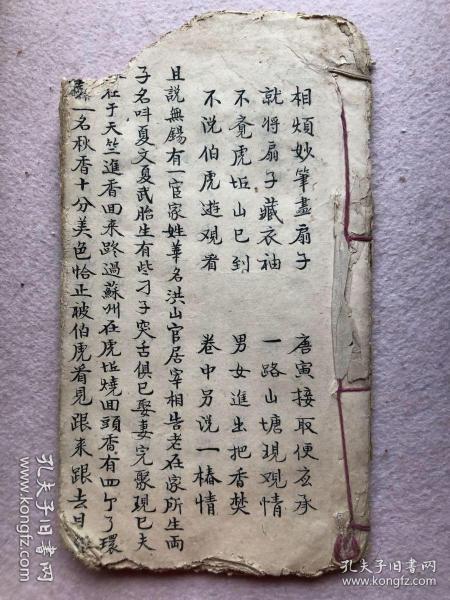 相煩妙筆畫扇子 唐寅接取便应承
就将扇子藏衣袖 一路山塘現观情
不竟虎垢山已到 男女進出把香焚
不说伯虎遊观看 卷中另说一樁情
且説無錫有一宦家姓華名洪山官居宰相告老在家所生両
子名呌夏文夏武胎生有些刁子突舌俱已娶妻完聚現已夫
在于天竺進香回来路過蘇州在虎垢燒回頭香有四个了環
一名秋香十分美色恰正被伯虎看見跟来跟去目
孔夫子旧书网
kongfz.com
孔夫子旧书网
https://book.kongfz.com